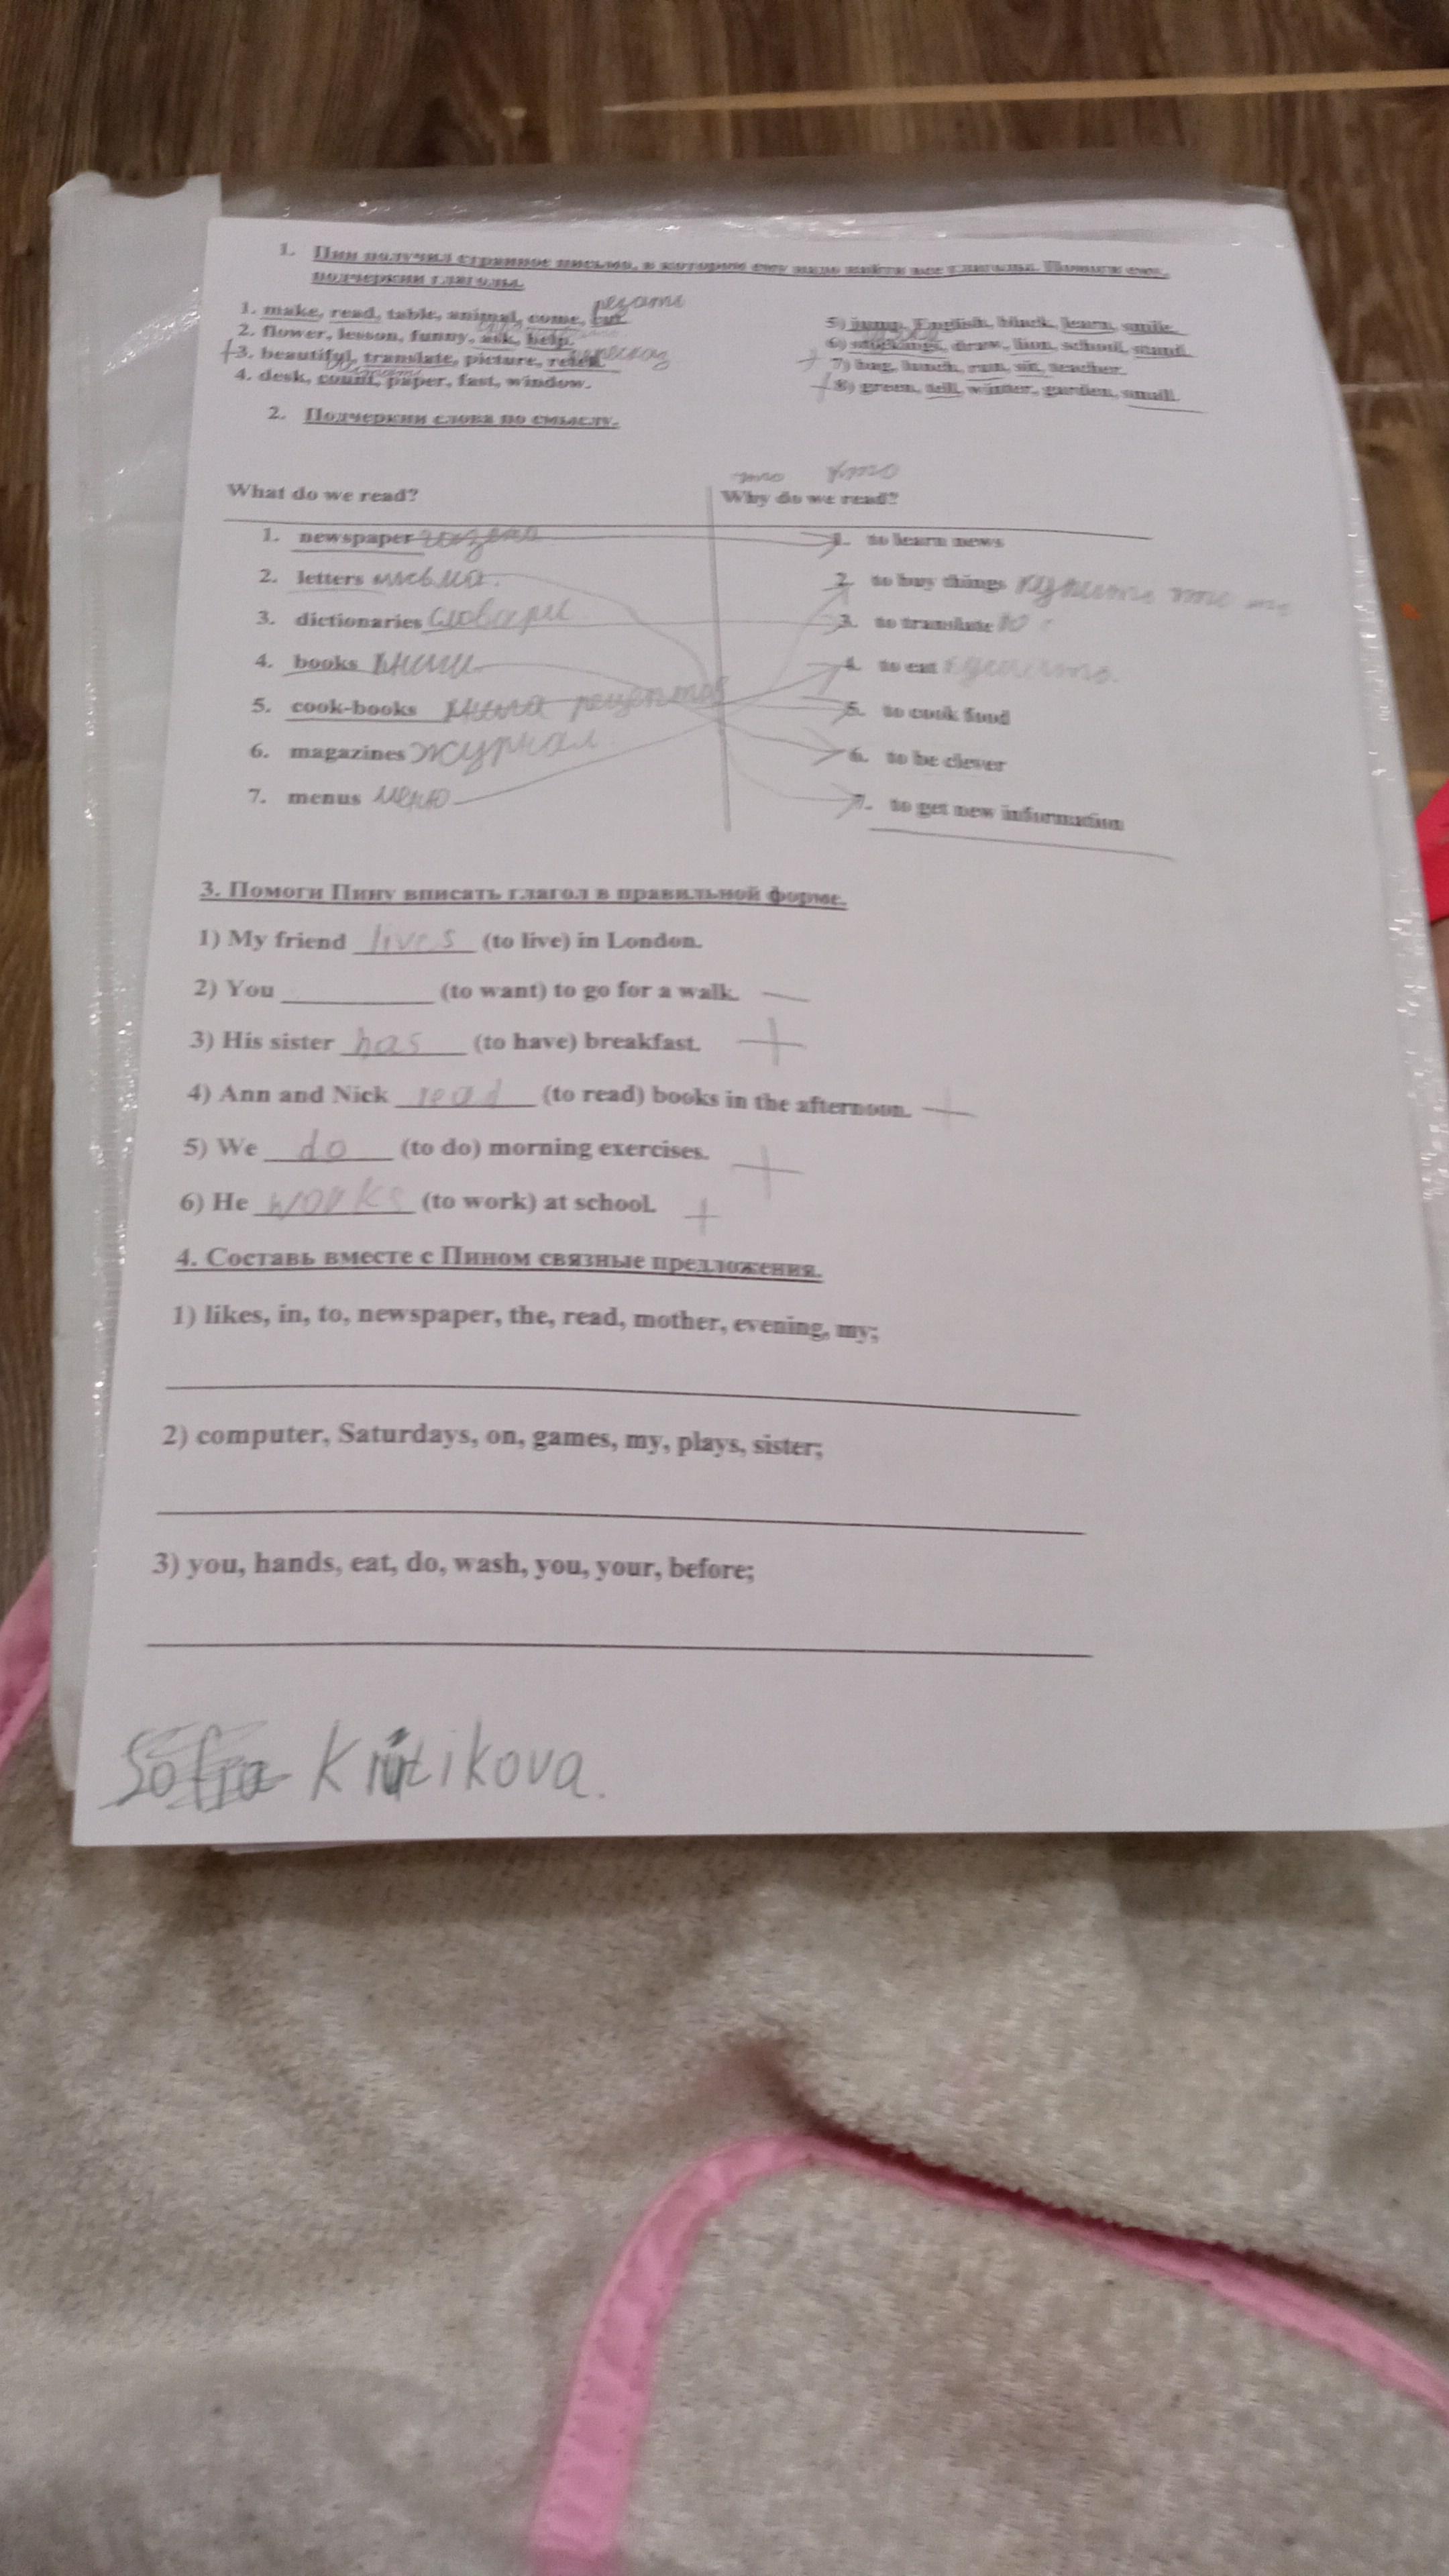 1. Пин получил странное письмо, в котором ему надо найти все глаголы. Помоги ему,
подчеркни глаголы.
резать
1. make, read, table, animal, come, cut.
2. flower, lesson, funny, ask, help.
3. beautiful, translate, picture, retell.
4. desk, count, paper, fast, window.
5) jump, English, black, learn, smile.
6) stockings, draw, lion, school, stand.
7) bag, lunch, run, sit, teacher.
8) green, tell, winter, garden, small.
2. Подчеркни слова по смыслу.
What do we read?
Why do we read?
1. newspaper газета
1. to learn news
2. letters письма.
2. to buy things купить что
3. dictionaries словари
3. to translate
4. books книги
4. to eat
5. cook-books книга рецептов
5. to cook food
6. magazines журнал
6. to be clever
7. menus меню
7. to get new information
3. Помоги Пину вписать глагол в правильной форме.
1) My friend lives (to live) in London.
2) You __________ (to want) to go for a walk. —
3) His sister has (to have) breakfast. +
4) Ann and Nick read (to read) books in the afternoon. +
5) We do (to do) morning exercises. +
6) He works (to work) at school. +
4. Составь вместе с Пином связные предложения.
1) likes, in, to, newspaper, the, read, mother, evening, my;
2) computer, Saturdays, on, games, my, plays, sister;
3) you, hands, eat, do, wash, you, your, before;
Sofia